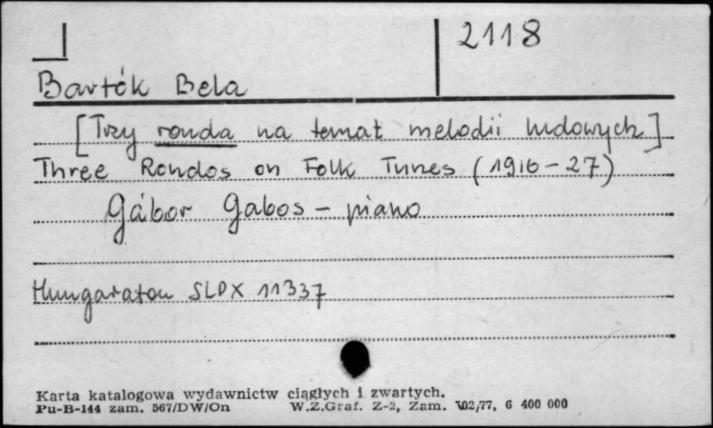 2118
Bartók Bela
[Trzy ronda na temat melodii ludowych]
Three Rondos on Folk Tunes (1916-27)
Gábor Gabos - piano
Hungaraton SLPX 11337
Karta katalogowa wydawnictw ciągłych i zwartych.
Pu-B-144 zam. 567/DW/On W.Z.Graf. Z-2, Zam. 702/77, 6 400 000